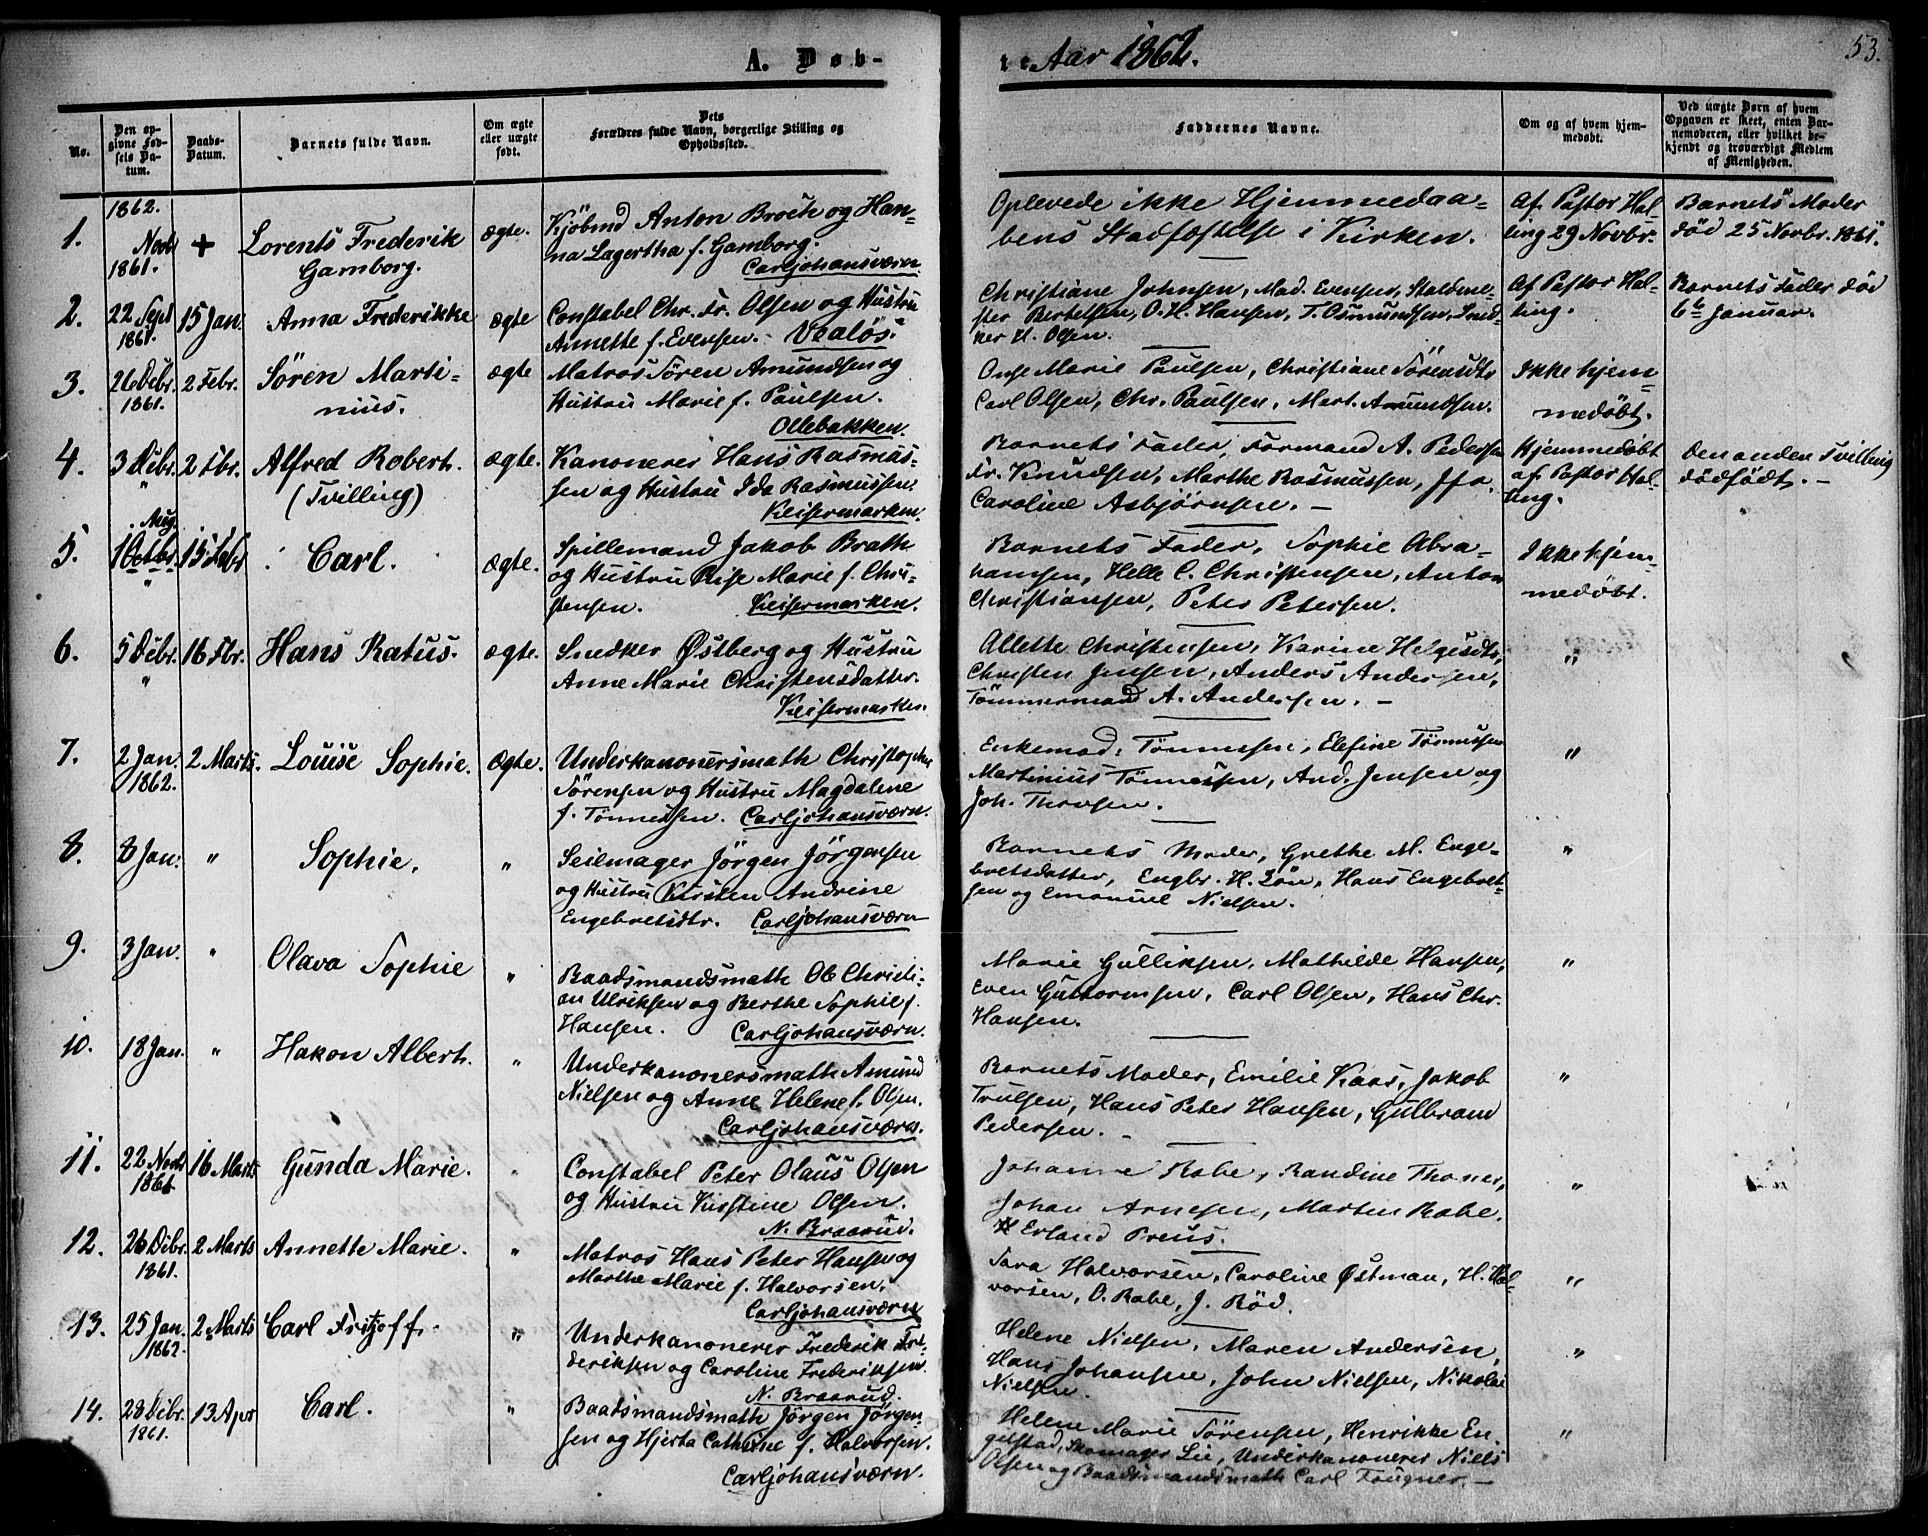 A. Døb-
te Aar 1862.
53.
No.
Den op-
givne Fød-
sels Da-
tum.
Daabs-
Datum.
Barnets fulde Navn.
Om ægte
eller uægte
født.
Dets
Forældres fulde Navn, borgerlige Stilling og
Opholdssted.
Faddernes Navne.
Om og af hvem hjem-
medøbt.
Ved uægte Børn af hvem
Opgaven er skeet, enten Bar-
nemoderen, eller hvilket be-
kjendt og troværdigt Medlem
af Menigheden.
1862.
1.
Novbr
1861.
+
Lorents Frederik
Gamborg.
ægte.
Kjöbmd Anton Broch og Han-
na Lagertha f. Gamborg.
Carljohansværn
Oplevede ikke Hjemmedaa-
bens Stadfæstelse i Kirken.
Af Pastor Hal-
ling 29 Novbr.
Barnets Moder
död 25 Novbr. 1861.
2.
22 Sept
1861.
15 Jan.
Anna Frederikke
ægte
Constabel Chr. Fr. Olsen og Hustru
Annette f. Evensen. Vealös.
Christiane Johnsen, Mad. Evensen, Staldme-
ster Bertelsen, O. H. Hansen, T. Osmundsen, Sned-
ker H. Olsen.
Af Pastor Hal-
ling.
Barnets Fader död
6te Januar.
3.
26 Debr.
1861.
2 Febr.
Sören Marti-
nius.
ægte
Matros Sören Amundsen og
Hustru Marie f. Paulsen.
Ollebakken.
Inge Marie Paulsen, Christiane Sörensdtr
Carl Olsen, Chr. Paulsen, Mart. Amundsen.
Ikke hjem-
medøbt.
4.
3 Debr.
"
2 Fbr.
Alfred Robert.
(Tvilling)
ægte.
Kanonerer Hans Rasmus-
sen og Hustru Ida Rasmussen.
Keisermarken.
Barnets Fader, Formand A. Pedersen
Fr. Knudsen, Marthe Rasmussen, Jfr.
Caroline Asbjörnsen. –
Hjemmedøbt
af Pastor Hal-
ling.
Den anden Tvilling
dödfödt. –
5.
Aug.
1 Octbr.
"
15 Febr
Carl.
ægte.
Spillemand Jakob Brath
og Hustru Elise Marie f. Chri-
stensen. Keisermarken.
Barnets Fader, Sophie Abra-
hamsen, Helle C. Christensen, Anton
Christiansen, Peter Petersen.
Ikke hjem-
medøbt.
6.
5 Debr.
"
16 Fbr.
Hans Ratus.
ægte.
Snedker Østberg og Hustru
Anne Marie Christensdatter.
Keisermarken.
Allette Christensen, Karine Helgesdtr,
Christen Jensen, Anders Andersen,
Tömmermand A. Andersen. –
"
7.
2 Jan.
1862.
2 Marts.
Louise Sophie.
Ægte.
Underkanonersmath Christopher
Sörensen og Hustru Magdalene
f. Tönnesen. Carljohansværn.
Enkemad. Tönnesen, Elefine Tönnesen
Martinius Tönnesen, And. Jensen og
Joh. Thorsen.
"
8.
8 Jan.
"
Sophie.
"
Seilmager Jörgen Jörgensen
og Hustru Kirsten Andrine
Engebretsdtr. Carljohansværn
Barnets Moder, Grethe M. Enge-
bretsdatter, Engbr. H. Lön, Hans Engebret-
sen og Emanuel Nielsen.
"
9.
3 Jan.
"
Olava Sophie
"
Baadsmandsmath Ol. Christi-
an Ulriksen og Berthe Sophie f.
Hansen. Carljohansværn.
Marie Gulliksen, Mathilde Hansen,
Even Guttormsen, Carl Olsen, Hans Chr.
Hansen.
"
10.
18 Jan.
"
Hakon Albert.
"
Underkanonersmath Amund
Nielsen og Anne Helene f. Olsen.
Carljohansværn.
Barnets Moder, Emilie Kaas, Jakob
Trulsen, Hans Peter Hansen, Gulbrand
Pedersen. –
"
11.
22 Novbr
1861
16 Marts
Gunda Marie.
"
Constabel Peter Olaus Olsen
og Hustru Kirstine Olsen.
N. Braarud.
Johanne Rabe, Randine Thones,
Johan Arnesen, Martin Rabe.
Erland Preus.
"
12.
26 Debr.
1861.
2 Marts
Annette Marie.
"
Matros Hans Peter Hansen og
Marthe Marie f. Halvorsen.
Carljohansværn
Sara Halvorsen, Caroline Østman, H. Hal-
vorsen, O. Rabe, J. Röd.
"
13.
25 Jan.
1862.
2 Marts
Carl Fritjoff.
"
Underkanonerer Frederik Fre-
deriksen og Caroline Frederiksen
N. Braarud.
Helene Nielsen, Maren Andersen,
Hans Johansen, John Nielsen, Nikolai
Nielsen.
"
14.
28 Debr.
1861.
13 Apr
Carl.
"
Baadsmandsmath Jörgen Jörgen-
sen og Hjerta Cathrine f. Halvorsen.
Carljohansværn.
Helene Marie Sörensen, Henrikke En-
gelstad, Skomager Lie, Underkanonerer Niels
Olsen og Baadsmandsmath Carl Fougner. –
"